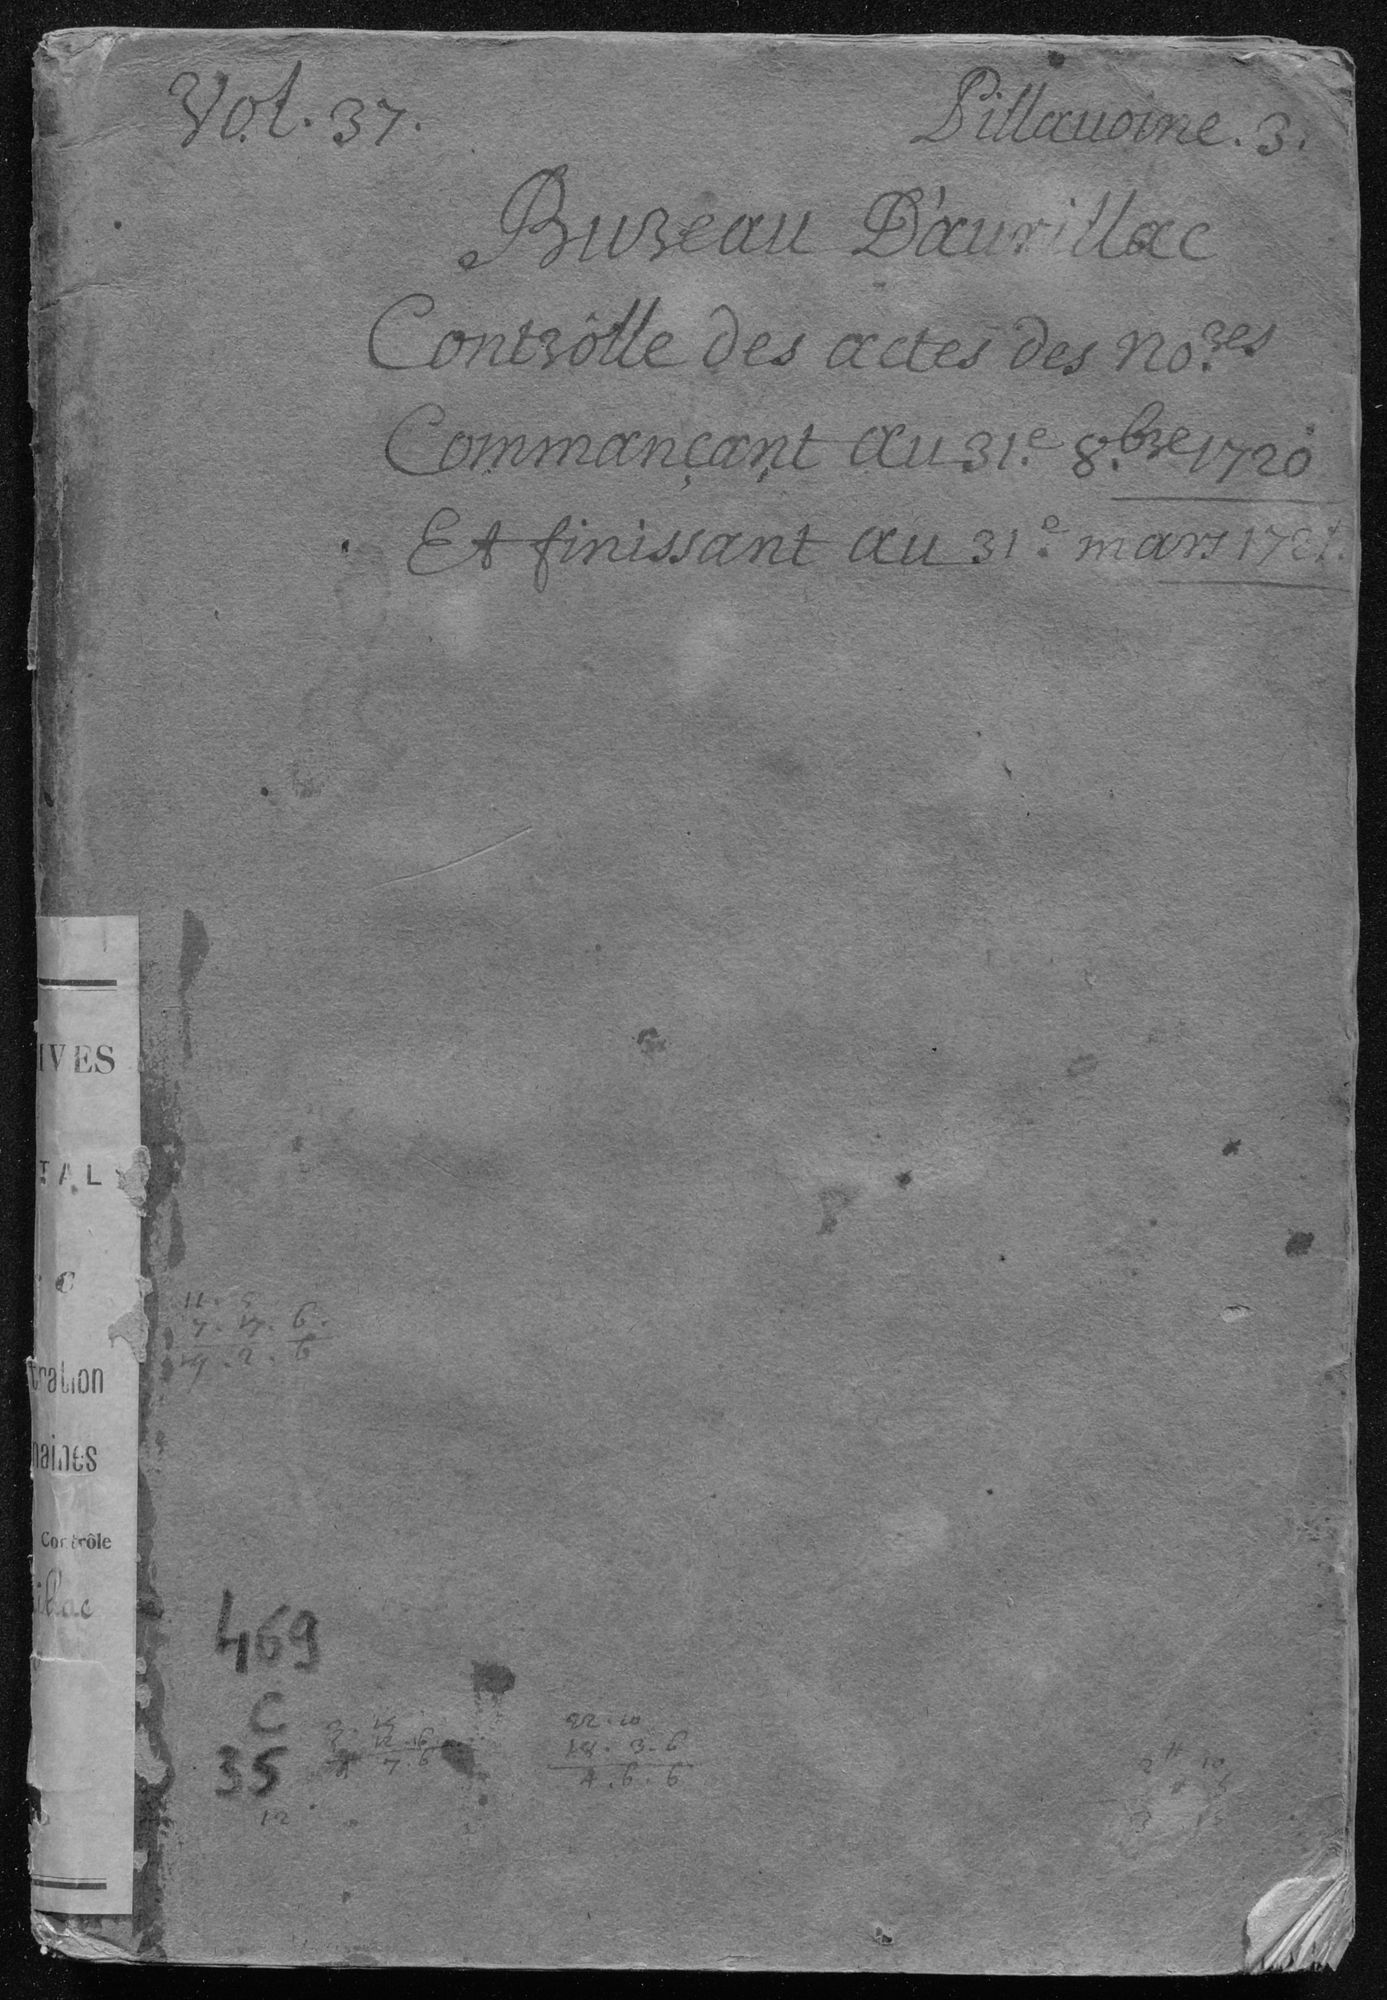 Vol. 37.
Pillauoine. 3.
Bureau D'aurillac
Contrôlle des actes des no.res
Commançant au 31.e 8.bre 1720
Et finissant au 31.e mars 1721.
IVES
TAL
C
tration
naines
Contrôle
illac
7. 17. 6.
19. 2. 6
469
C
35
12
22. 10
18. 3. 6
4. 6. 6
7. 6